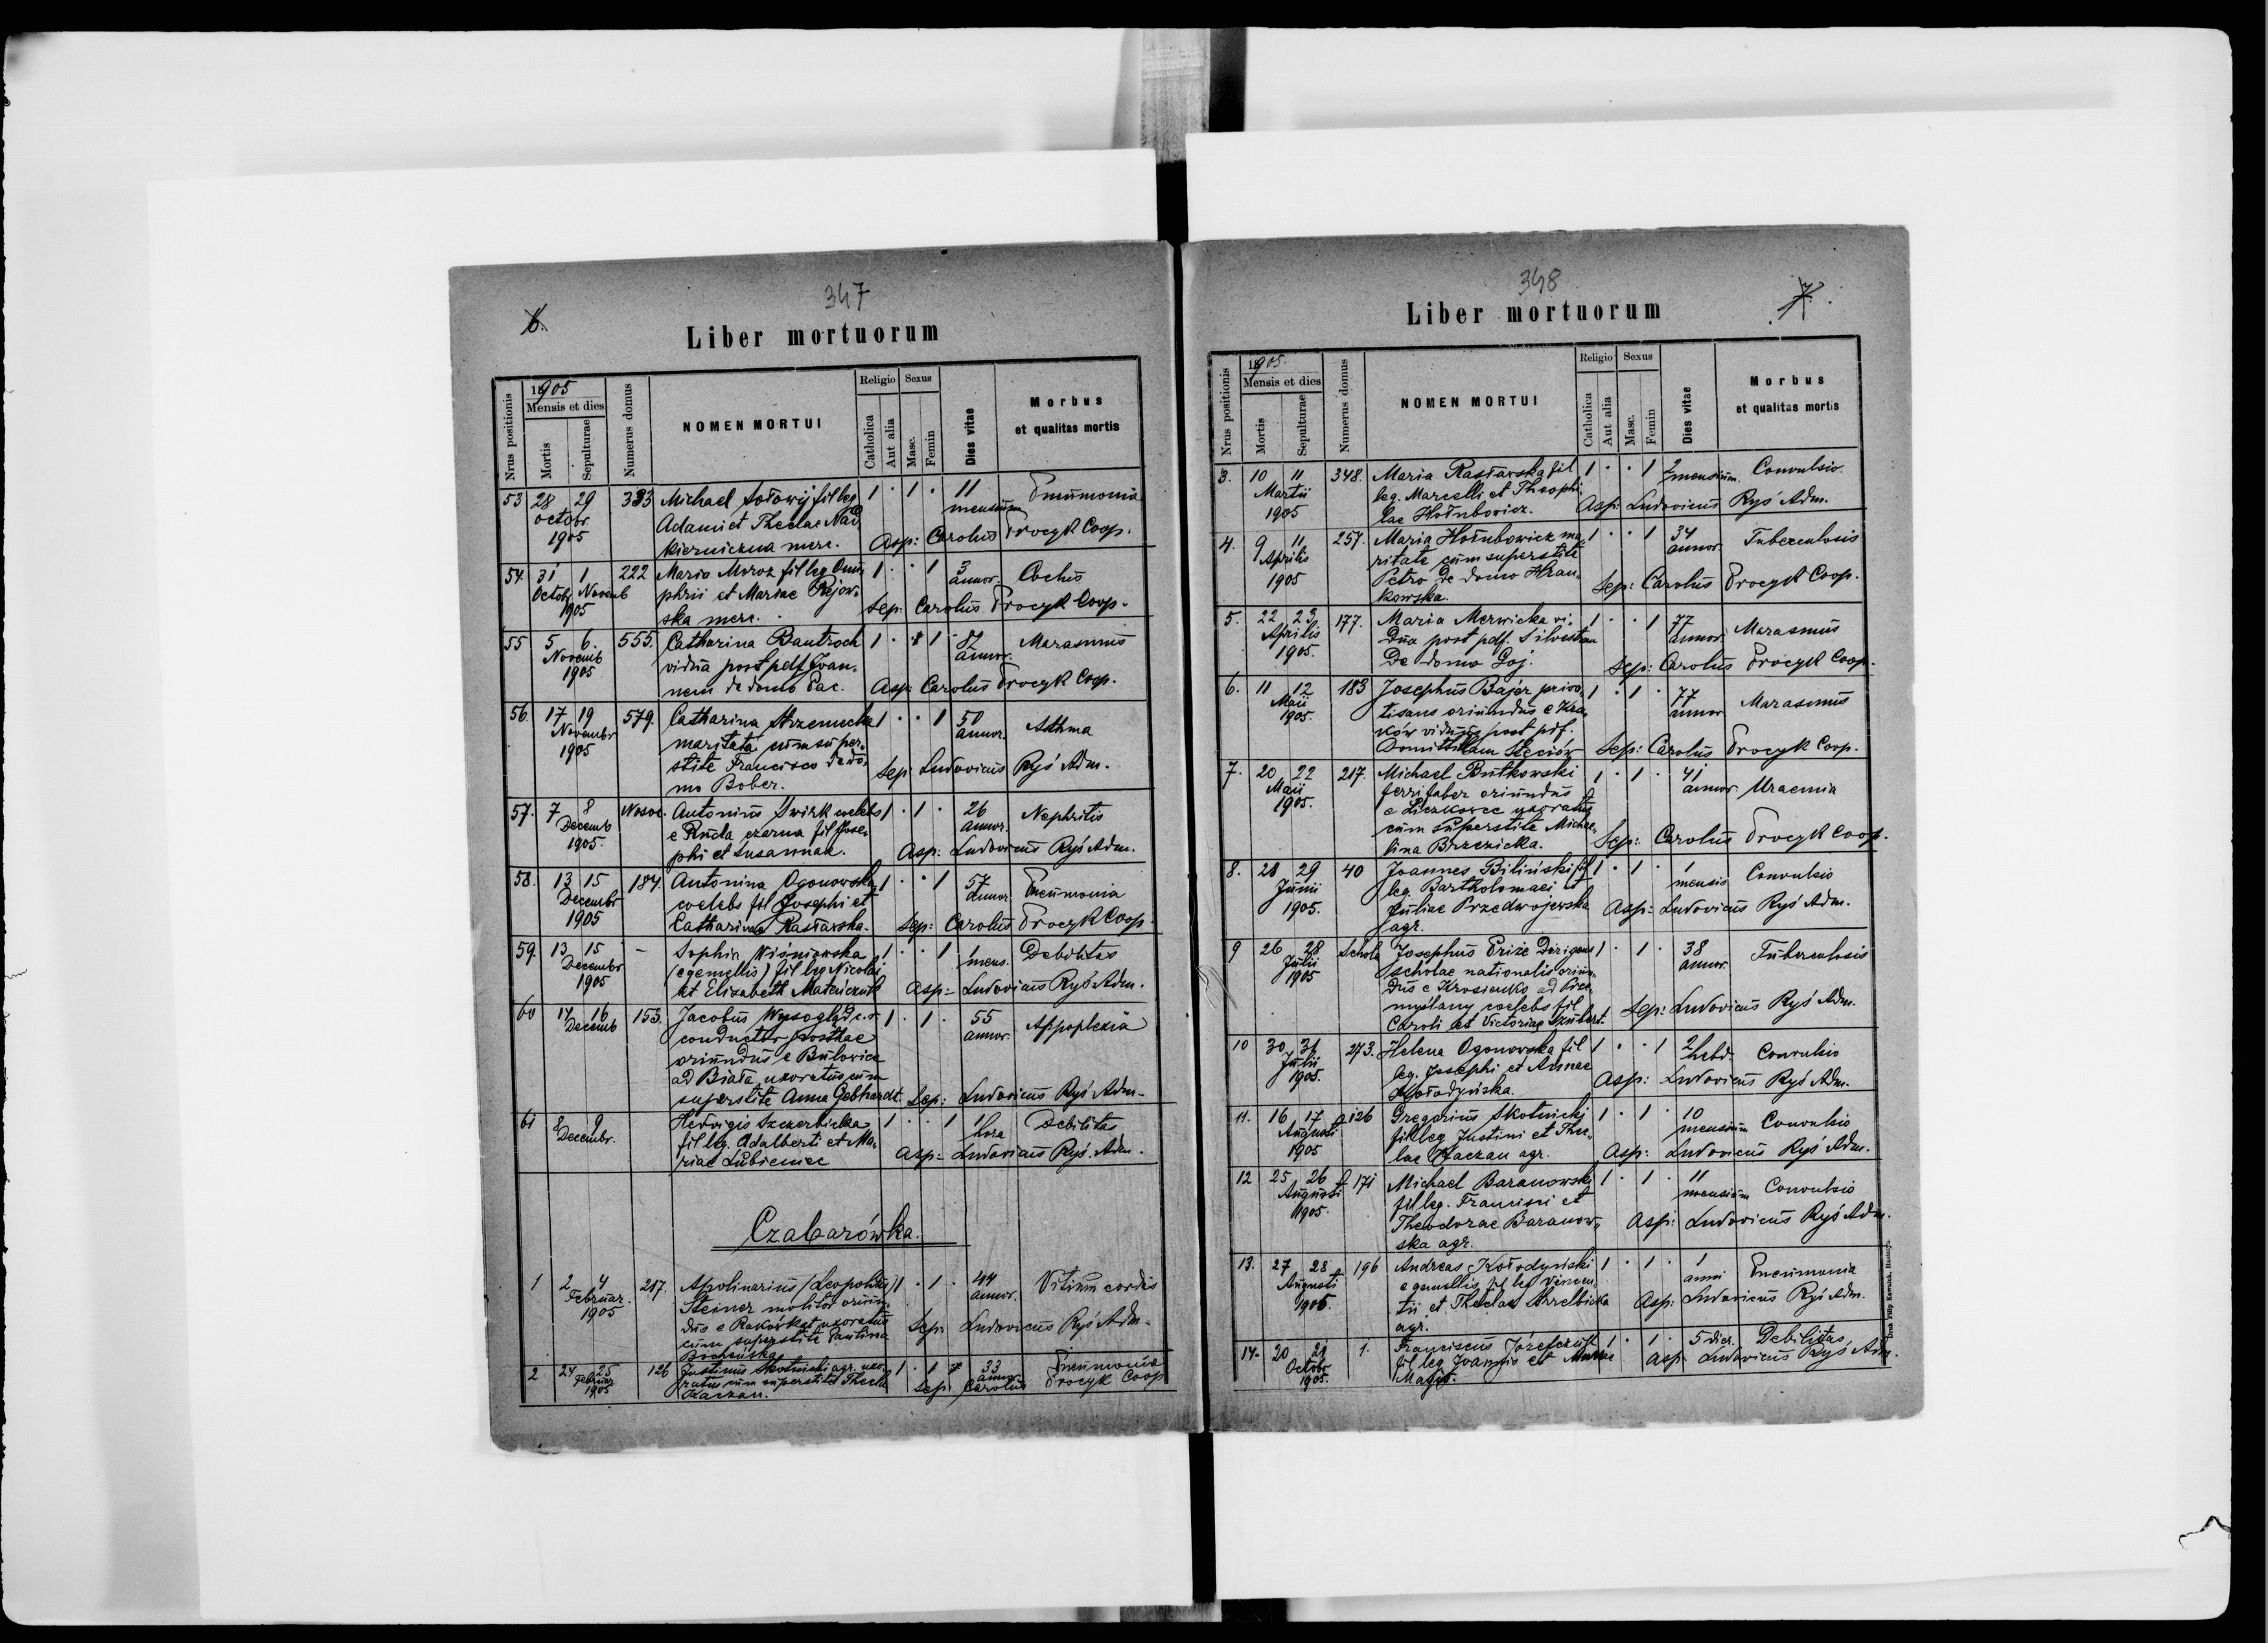 347
6.
Liber mortuorum
Nrus positionis
1905
Mensis et dies
Mortis
Sepulturae
Numerus domus
NOMEN MORTUI
Religio
Catholica
Aut alia
Sexus
Masc.
Femin
Dies vitae
Morbus
et qualitas mortis
53 28 29 383 Michael Sołowij fil leg 1 · 1 · 11 Pneumonia
octobr. Adami et Theclae Nad mensium
1905 kierniczna merc. Asp: Carolus Procyk Coop.
54. 31 1 222 Maria Moroz fil leg Onu 1 · · 1 3 Cochus
Octobr Novemb phrii et Mariae Rejow„ annor.
1905 ska merc. Sep: Carolus Procyk Coop.
55 5 6. 555. Catharina Bautroch 1 · 1 82 Marasmus
Novemb vidua post pdf Joan„ annor.
1905 nem de domo Pac. Asp: Carolus Procyk Coop.
56. 17 19 579. Catharina Strzemecka 1 · · 1 50 Asthma
Novembr maritata cum super„ annor.
1905 stite Francisco de do„ Sep: Ludovicus Ryś Adm.
mo Bober.
57. 7 8 Nosoc. Antonius Swirk coelebs 1 · 1 · 26 Nephritis
Decemb e Ruda czarna fil Jose„ annor.
1905. phi et Susannae. Asp: Ludovicus Ryś Adm.
58. 13 15 184. Antonina Ogonowska 1 · · 1 57 Pneumonia
Decembr coelebs fil Josephi et annor.
1905 Catharinae Rastawska. Sep: Carolus Procyk Coop.
59. 13 15 – Sophia Wiśniowska 1 · · 1 1 Debilitas
Decembr (e gemellis) fil leg Nicolai mens.
1905 et Elisabeth Mateiczuk Asp: Ludovicus Ryś Adm.
60 14 16 153. Jacobus Wysogląd c. r 1 · 1 · 55 Appoplexia
Decemb conductor posthac annor.
oriundus e Bulowice
ad Biała uxoratus cum
superstite Anna Gebhardt. Sep: Ludovicus Ryś Adm.
61 8 9 Hedvigis Szczerbicka 1 · · 1 1 Debilitas
Decembr. fil leg. Adalberti et Ma„ hora
riae Lubieniec Asp: Ludovicus Ryś. Adm.
Czabarówka.
1 2 4 217. Apolinarius (Leopoldus) 1 · 1 · 44 Vitium cordis
Februar. Steiner molitor oriun„ annor.
1905 dus e Rakówkąt uxoratus Sep: Ludovicus Ryś Adm.
cum superstite Paulina
2 24 25 126 Justinus Skotnicki agr. uxo„ 1 · 1 33 Pneumonia
Februar ratus cum superstite Thecla annor.
1905 Kaczan. Sep: Carolus Procyk Coop
348
7.
Liber mortuorum
Nrus positionis
1905.
Mensis et dies
Mortis
Sepulturae
Numerus domus
NOMEN MORTUI
Religio
Catholica
Aut alia
Sexus
Masc.
Femin
Dies vitae
Morbus
et qualitas mortis
3. 10 11 348. Maria Rastawska fil 1 · · 1 2 Convulsio
Martii leg. Marcelli et Theophi„ mensium
1905 lae Hołubowicz. Asp: Ludovicus Ryś Adm.
4. 9 11 257. Maria Hołubowicz ma„ 1 · · 1 34 Tuberculosis
Aprilis ritata cum superstite annor.
1905 Petro de domo Hran„ Sep: Carolus Procyk Coop.
kowska.
5. 22 23 177. Maria Merwicka vi„ 1 · · 1 77 Marasmus
Aprilis dua post pdf. Silvestrum annor.
1905. de domo Goj. Sep: Carolus Procyk Coop.
6. 11 12 183 Josephus Bajer privo„ 1 · 1 · 77 Marasmus
Maii tisans oriundus e Kra„ annor
1905. ków viduus post pdf.
Domitillam Steciów Sep: Carolus Procyk Coop.
7. 20 22 217. Michael Butkowski 1 · 1 · 41 Uraemia
Maii ferri faber oriundus annor
1905. e Liczkowce uxoratus
cum superstite Michae„
lina Brzezicka. Sep: Carolus Procyk Coop.
8. 28 29 40 Joannes Biliński fil 1 · 1 · 1 Convulsio
Junii leg. Bartholomaei et mensis
1905. Juliae Przedwojewska Asp: Ludovicus Ryś Adm.
agr.
9 26 28 Schola Josephus Prize Dirigens 1 · 1 · 38 Tuberculosis
Julii scholae nationalis oriun„ annor.
1905 dus e Krosienko ad Prze„
myślany coelebs fil Sep: Ludovicus Ryś Adm.
Caroli et Victoriae Szubert.
10 30 31 273. Helena Ogonowska fil 1 · · 1 2 Convulsio
Julii leg. Josephi et Annae hebd.
1905. Kołodyńska. Asp: Ludovicus Ryś Adm.
11. 16 17 126 Gregorius Skotnicki 1 · 1 · 10 Convulsio
Augusti fil leg Justini et Thec„ mensium
1905 lae Kaczan agr. Asp: Ludovicus Ryś Adm.
12 25 26 171 Michael Baranowski 1 · 1 · 11 Convulsio
Augusti fil leg. Francisci et mensium
1905. Theodorae Baranow„ Asp: Ludovicus Ryś Adm.
ska agr.
13. 27 28 196 Andreas Kołodyński 1 · 1 · 1 Pneumonia
Augusti e gemellis fil leg Vincen„ anni
1905. tii et Theclae Strzelbicka Asp: Ludovicus Ryś Adm.
agr.
14. 20 21 1. Franciscus Józefczuk 1 · 1 · 5 dier. Debilitas
Octobr fil leg Joannis et Mariae Asp: Ludovicus Ryś Adm.
1905.